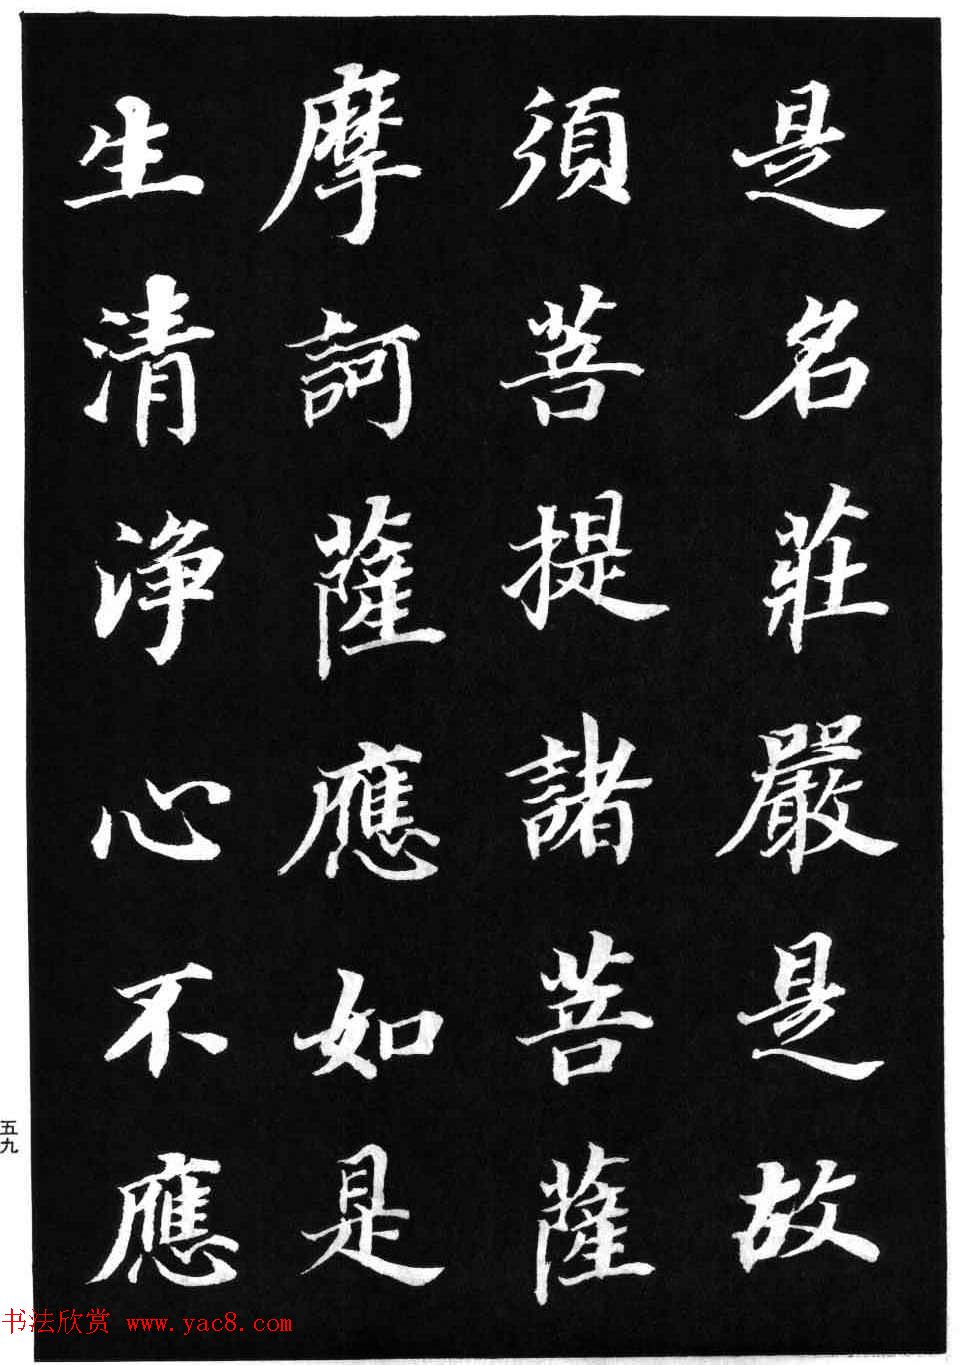 是名莊嚴是故
須菩提諸菩薩
摩訶薩應如是
生清淨心不應
五九
书法欣赏 www.yac8.com